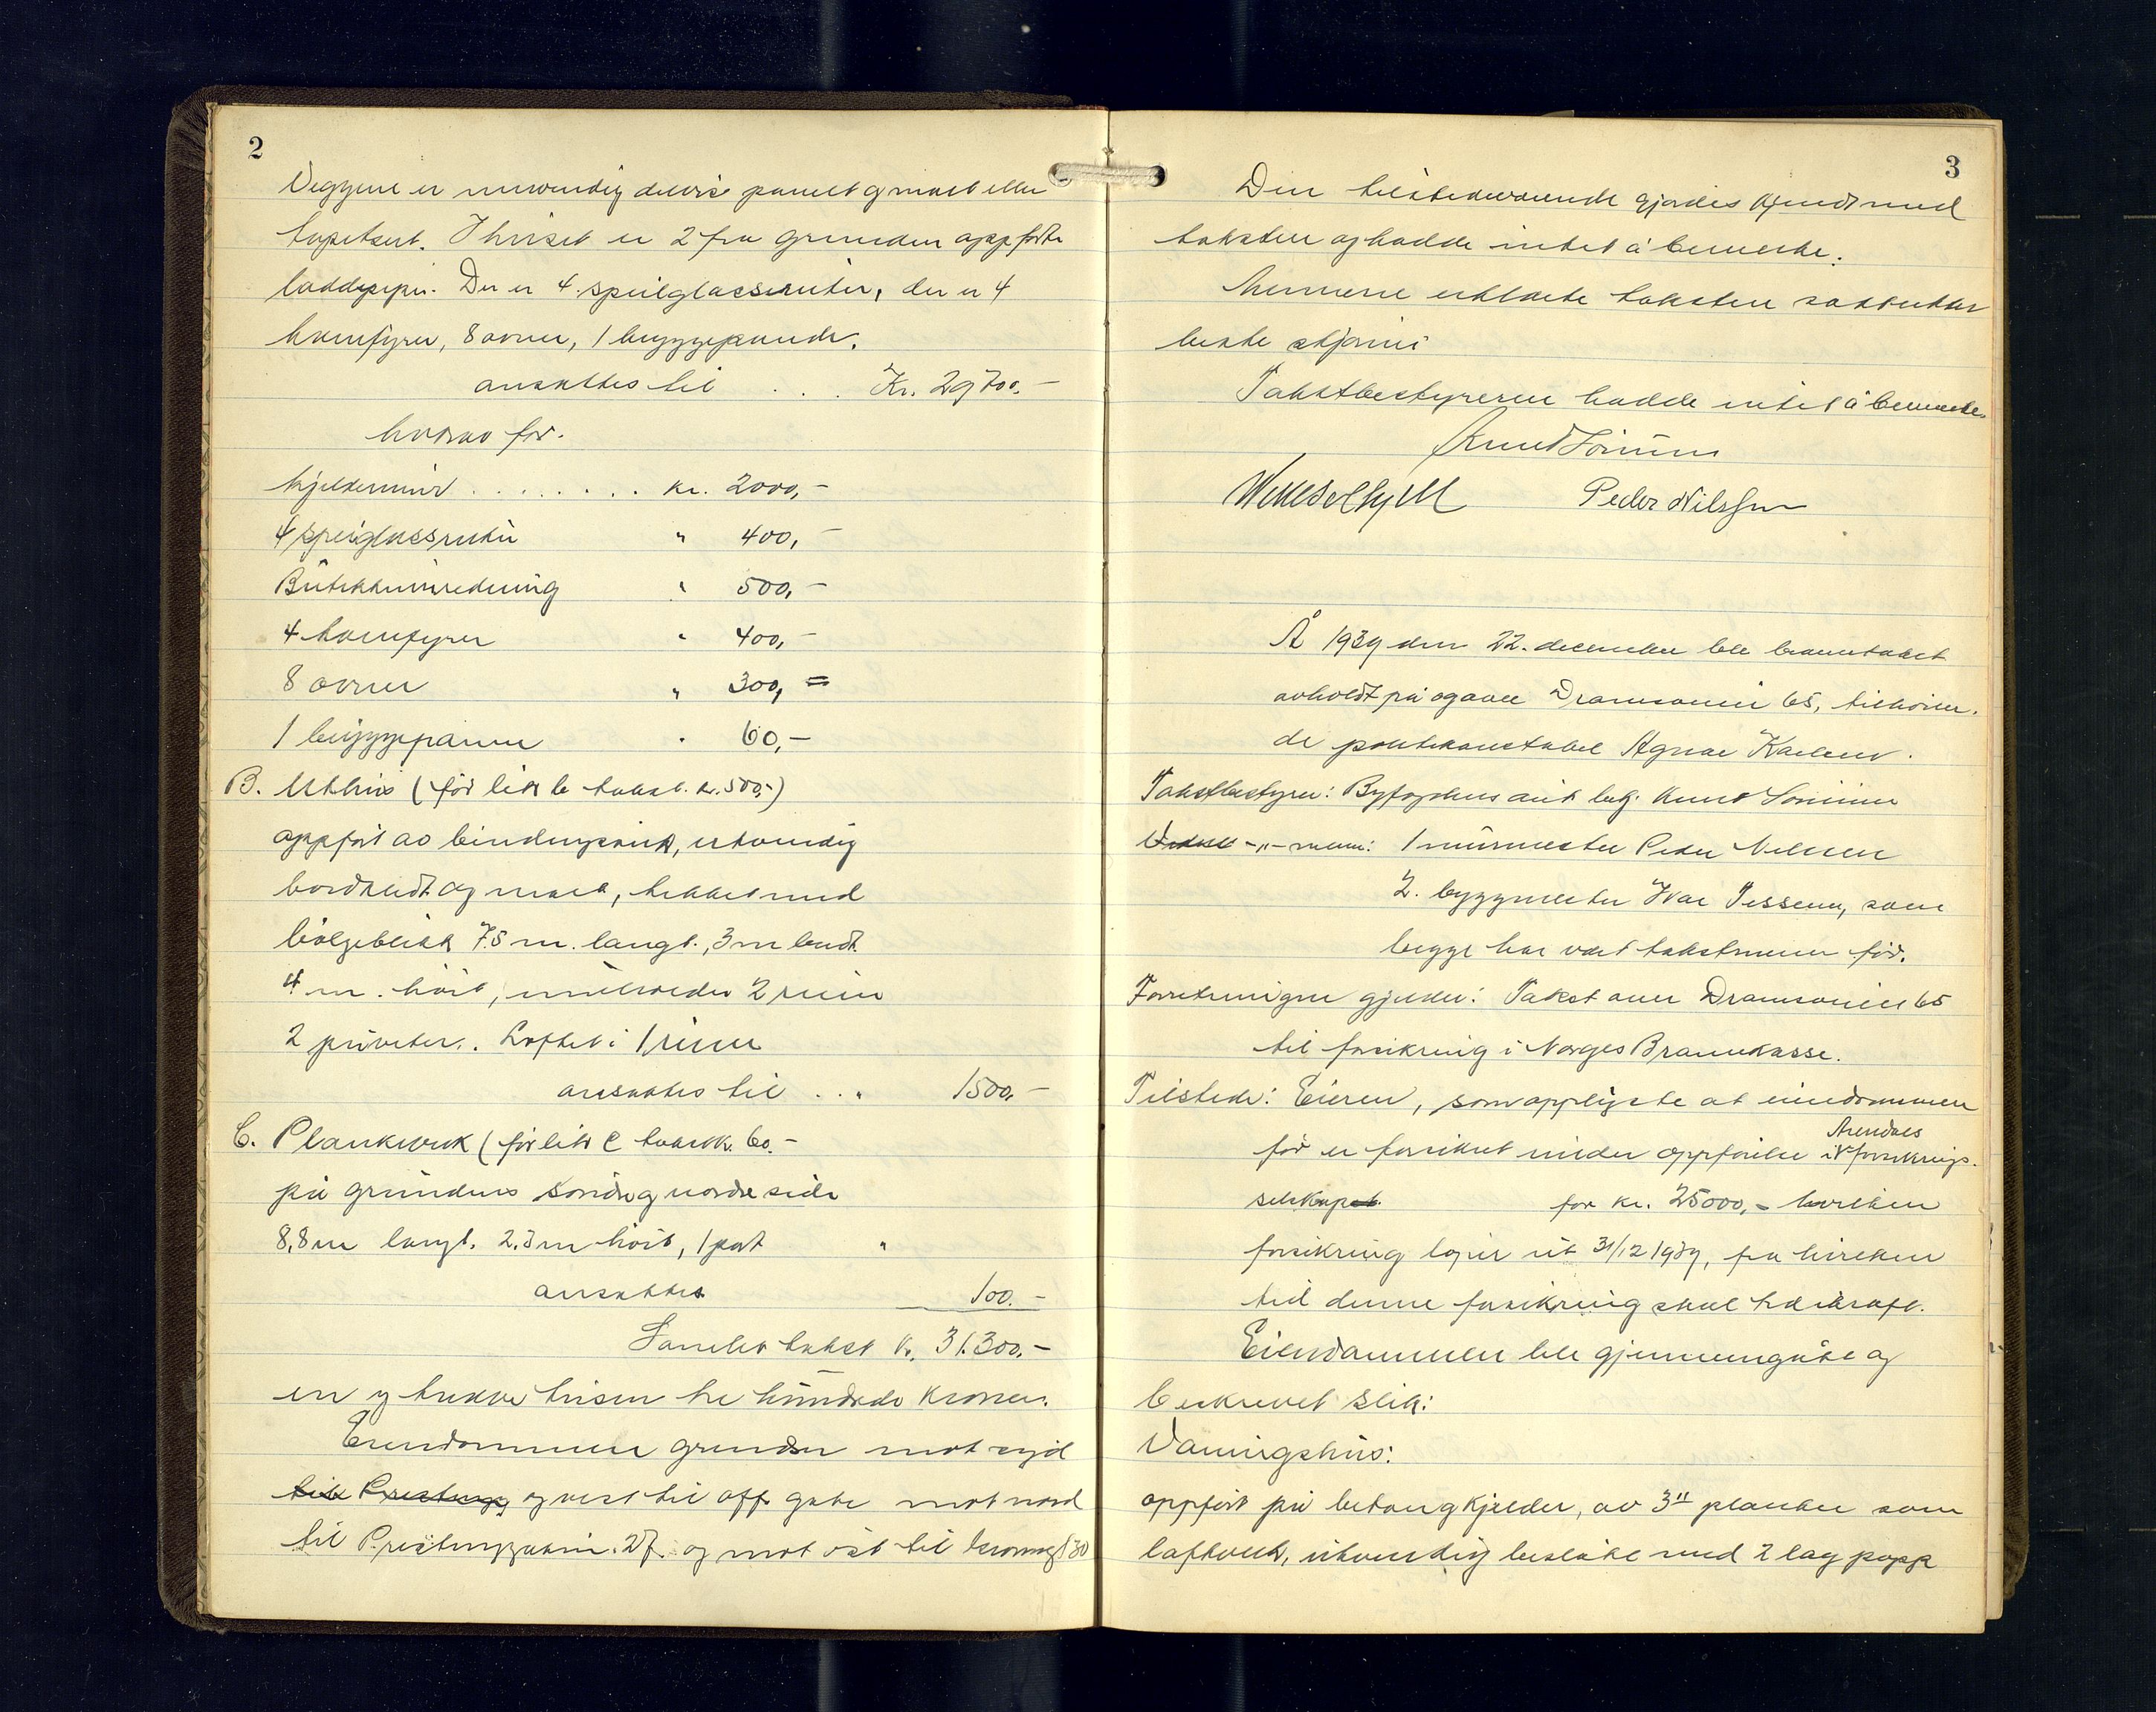 2
Veggene er innvendig delvis panelt og malt eller
tapetsert. I huset er 2 fra grunden oppførte
loddpiper. Der er 4 speilglassruter, der er 4
komfyrer, 8 ovner, 1 bryggepande.
ansattes til . . . Kr. 29700.-
hvorav for.
kjeldermur . . . . . . . . kr. 2000,-
4 speilglassruter " 400,-
Butikkinnredning " 500,-
4 komfyrer " 400,-
8 ovner " 300,=
1 bryggepanne " 60,-
B. Uthus (før litr b takst. kr. 500,-)
oppført av bindingsverk, utvendig
bordkledt og malt, tekket med
bølgeblikk 7.5 m. langt., 3 m bredt.
4 m. høit, innelholder 2 rum
2 priveter. Loftet: 1 rum
ansattes til . . . 1500,-
C. Plankverk (før litr C takst kr. 60.-
på grundens søndre og nordre side
8,8 m langt. 2.3 m høit, 1 port "
ansattes 100.-
Samlet takst Kr. 31.300.-
en og trekve tusen tre hundrede kroner.
Eiendommen grenser mot syd
til og vest til off. gate mot nord
til 27. og mot øst til 30
3
Den tilstedeværende gjordes kjendt med
taksten og hadde intet å bemerke.
Mennene erklærte taksten satt efter
beste skjønn
Takstbestyreren hadde intet å bemerke.
Knud
Peder Nilsson
År 1939 den 22. december ble branntakst
avholdt på ogavel Dramsveien 65, tilhøren-
de politikonstabel Agnar Karlsen.
Takstbestyrer: Byfogdens aut. betj. Knud
-"- menn: 1 murmester Peder Nilssen
2. byggmester Ivar Jessen, som
begge har vært takstmenn før.
Forretningen gjelder: Takst over Dramsveien 65
til forsikring i Norges Brannkasse.
Tilstede: Eieren, som opplyste at eiendommen
før er forsikret under oppførelse i Arendals forsikrings-
selskap for kr. 25000,- hvilken
forsikring løper ut 31/12 1939, fra hvilken
tid denne forsikring skal tre i kraft.
Eiendommen ble gjennemgått og
beskrevet slik:
Vaningshus:
oppført på betong kjelder, av 3" planker som
lafteverk, utvendig beslått med 2 lag papp